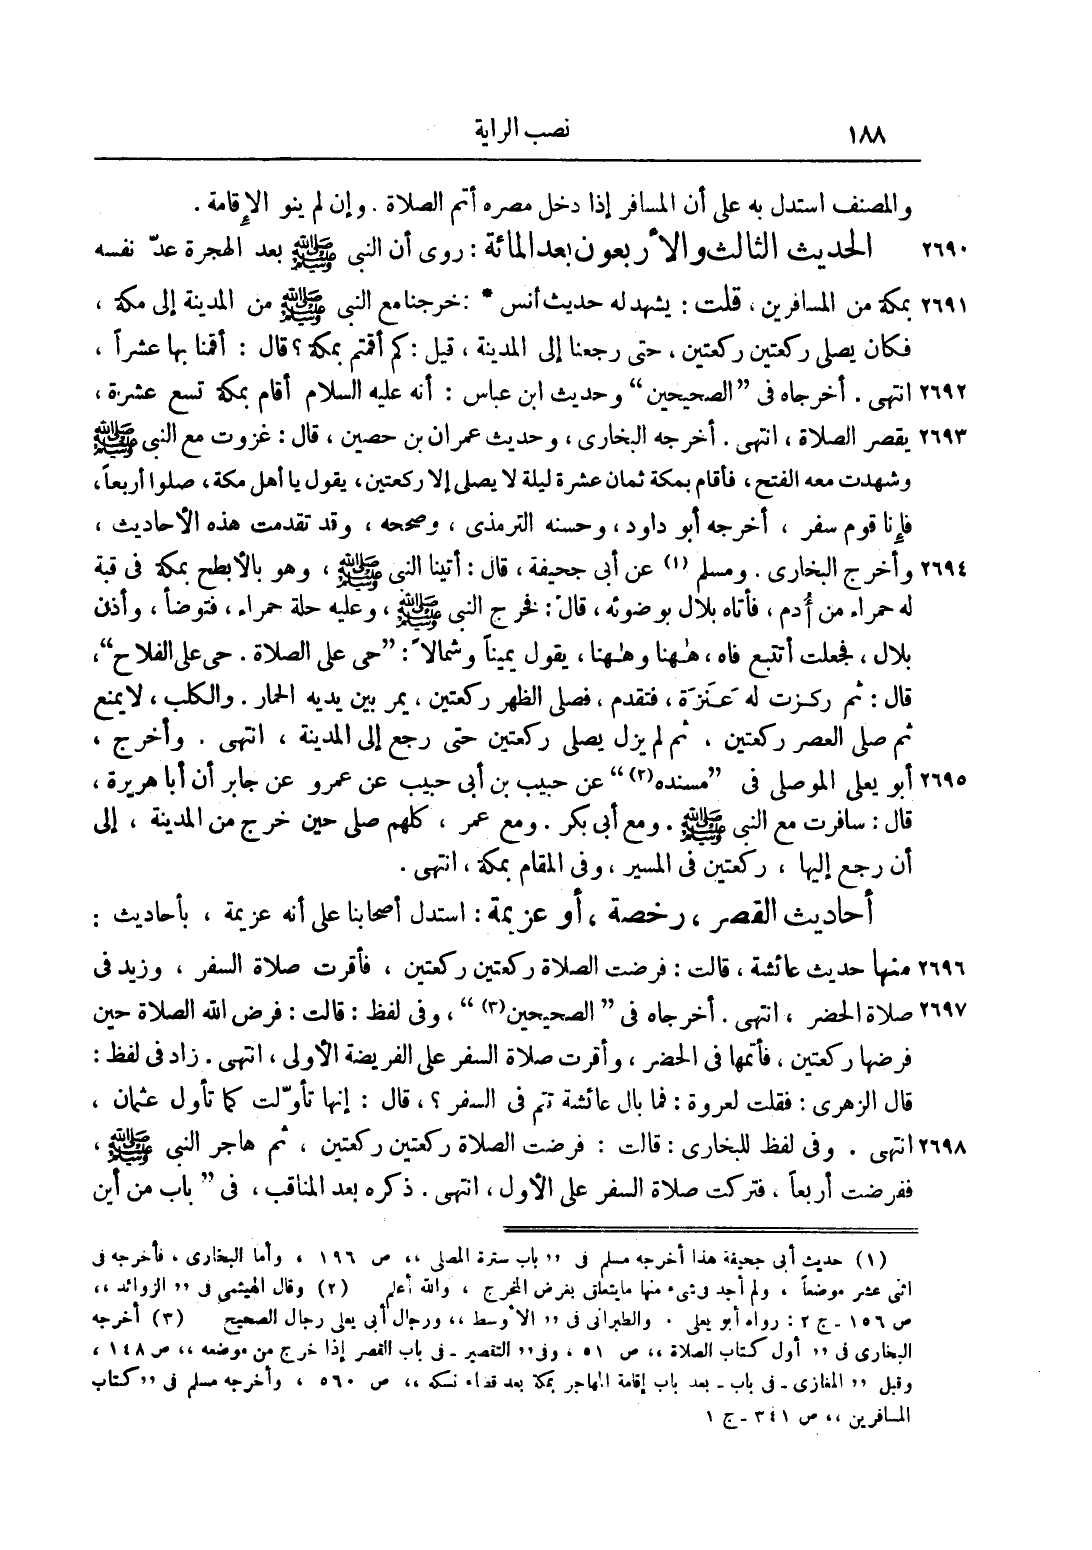 ١٨٨ نصب الراية
والمصنف استدل به على أن المسافر إذا دخل مصره أتم الصلاة. وإن لم ينو الإقامة.
٢٦٩٠ الحديث الثالث والأربعون بعد المائة: روى أن النبي ﷺ بعد الهجرة عدّ نفسه
٢٦٩١ بمكة من المسافرين، قلت: يشهد له حديث أنس * : خرجنا مع النبي ﷺ من المدينة إلى مكة،
فكان يصلى ركعتين ركعتين، حتى رجعنا إلى المدينة، قيل: كم أقمتم بمكة؟ قال: أقمنا بها عشراً،
٢٦٩٢ انتهى. أخرجاه فى "الصحيحين" وحديث ابن عباس: أنه عليه السلام أقام بمكة تسع عشرة،
٢٦٩٣ يقصر الصلاة، انتهى. أخرجه البخارى، وحديث عمران بن حصين، قال: غزوت مع النبي ﷺ
وشهدت معه الفتح، فأقام بمكة ثمان عشرة ليلة لا يصلى إلا ركعتين، يقول يا أهل مكة، صلوا أربعاً،
فإنا قوم سفر، أخرجه أبو داود، وحسنه الترمذى، وصححه، وقد تقدمت هذه الأحاديث،
٢٦٩٤ وأخرج البخارى. ومسلم (١) عن أبى جحيفة، قال: أتينا النبى ﷺ، وهو بالأبطح بمكة فى قبة
له حمراء من أُدم، فأتاه بلال بوضوئه، قال: فخرج النبى ﷺ، وعليه حلة حمراء، فتوضأ، وأذن
بلال، فجعلت أتتبع فاه، هٰهنا وهٰهنا، يقول يميناً وشمالاً: "حى على الصلاة. حى على الفلاح"،
قال: ثم ركزت له عَنَزَة، فتقدم، فصلى الظهر ركعتين، يمر بين يديه الحمار. والكلب، لا يمنع
ثم صلى العصر ركعتين. ثم لم يزل يصلى ركعتين حتى رجع إلى المدينة، انتهى. وأخرج،
٢٦٩٥ أبو يعلى الموصلى فى "مسنده(٢)" عن حبيب بن أبى حبيب عن عمرو عن جابر أن أبا هريرة،
قال: سافرت مع النبى ﷺ. ومع أبى بكر. ومع عمر، كلهم صلى حين خرج من المدينة، إلى
أن رجع إليها، ركعتين فى المسير، وفى المقام بمكة، انتهى.
أحاديث القصر، رخصة، أو عزيمة: استدل أصحابنا على أنه عزيمة، بأحاديث:
٢٦٩٦ منها حديث عائشة، قالت: فرضت الصلاة ركعتين ركعتين، فأقرت صلاة السفر، وزيد فى
٢٦٩٧ صلاة الحضر، انتهى. أخرجاه فى "الصحيحين(٣)"، وفى لفظ: قالت: فرض الله الصلاة حين
فرضها ركعتين، فأتمها فى الحضر، وأقرت صلاة السفر على الفريضة الأولى، انتهى. زاد فى لفظ:
قال الزهرى: فقلت لعروة: فما بال عائشة تتم فى السفر؟، قال: إنها تأوّلت كما تأول عثمان،
٢٦٩٨ انتهى. وفى لفظ للبخارى: قالت: فرضت الصلاة ركعتين ركعتين، ثم هاجر النبى ﷺ،
ففرضت أربعاً، فتركت صلاة السفر على الأول، انتهى. ذكره بعد المناقب، فى "باب من أين
(١) حديث أبى جحيفة هذا أخرجه مسلم فى ،، باب سترة المصلى ،، ص ١٩٦، وأما البخارى، فأخرجه فى
اثنى عشر موضعاً، ولم أجد فى شىء منها مايتعلق بغرض المخرج، والله أعلم (٢) وقال الهيثمى فى ،، الزوائد ،،
ص ١٥٦ - ج ٢: رواه أبو يعلى. والطبرانى فى ،، الأوسط ،، ورجال أبى يعلى رجال الصحيح (٣) أخرجه
البخارى فى ،، أول كتاب الصلاة ،، ص ٥١، وفى ،، التقصير - فى باب القصر إذا خرج من موضعه ،، ص ١٤٨،
وقبل ،، المغازى - فى باب - بعد باب إقامة المهاجر بمكة بعد قضاء نسكه ،، ص ٥٦٠، وأخرجه مسلم فى ،، كتاب
المسافرين ،، ص ٣٤١ - ج ١